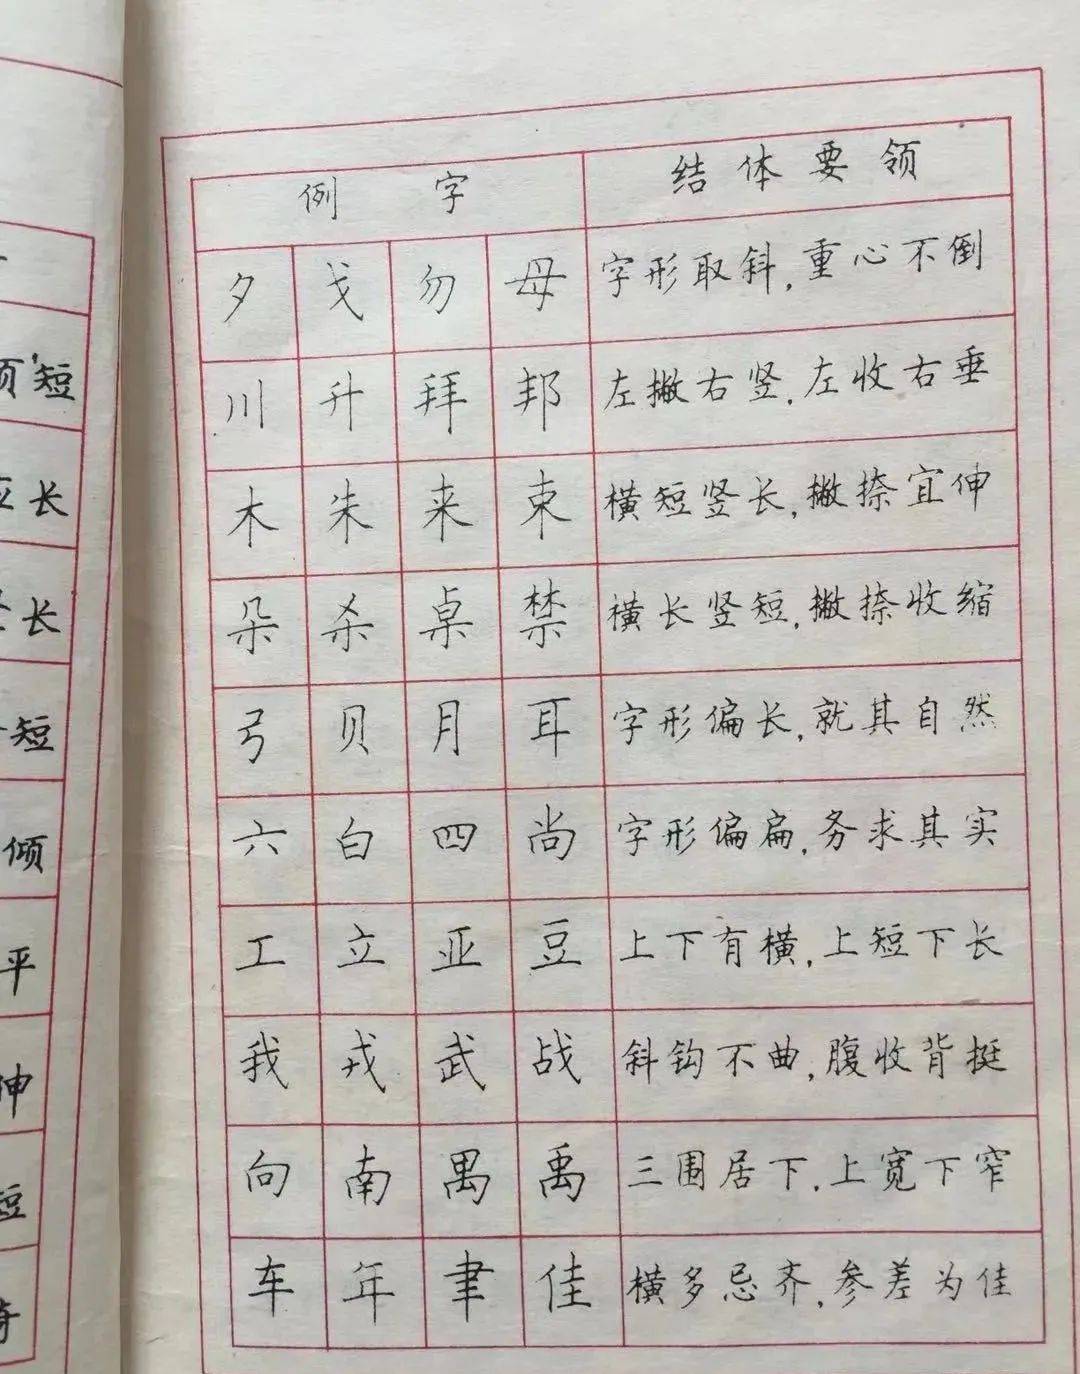 短
长
长
短
倾
平
伸
短
例 字 结体要领
夕 戈 勿 母 字形取斜,重心不倒
川 升 拜 邦 左撇右竖,左收右垂
木 朱 来 束 横短竖长,撇捺宜伸
朵 杀 桌 禁 横长竖短,撇捺收缩
弓 贝 月 耳 字形偏长,就其自然
六 白 四 尚 字形偏扁,务求其实
工 立 亚 豆 上下有横,上短下长
我 戎 武 战 斜钩不曲,腹收背挺
向 南 禺 禹 三围居下,上宽下窄
车 年 聿 佳 横多忌齐,参差为佳